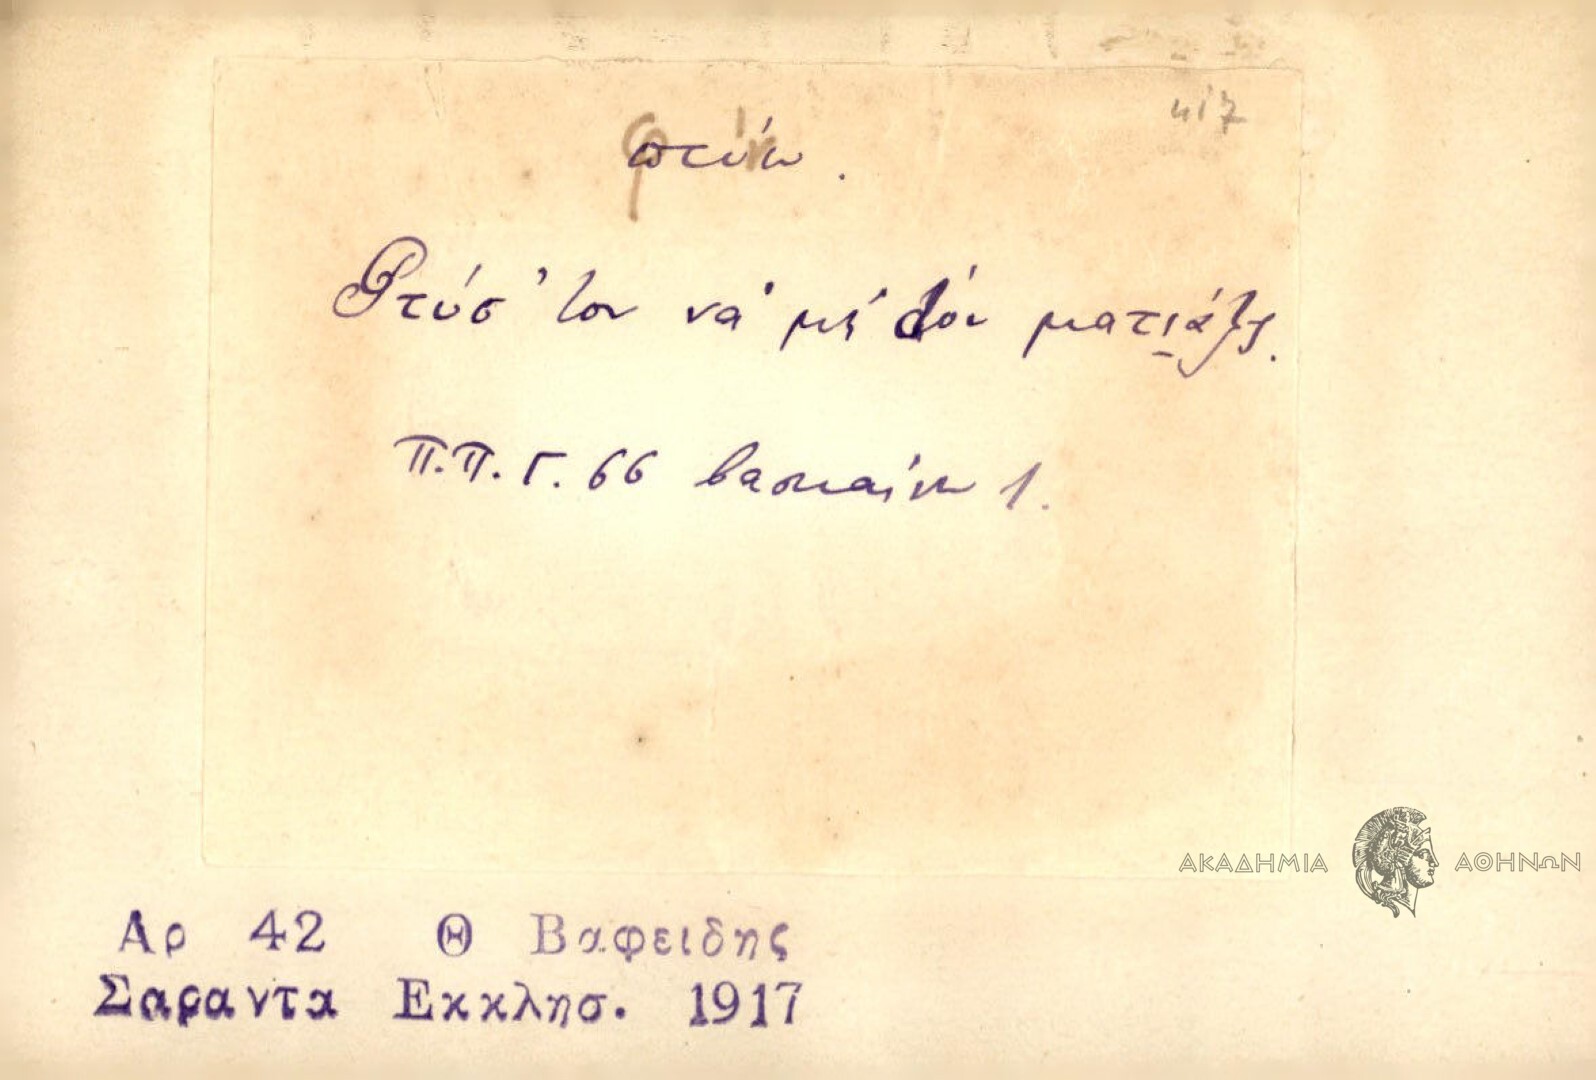 417
πτύω.
Φτύσ' τον νὰ μὴ τὸν ματιάζ̌ς.
Π.Π.Γ. 66 βασκαίνω 1.
ΑΚΑΔΗΜΙΑ ΑΘΗΝΩΝ
Αρ 42 Θ Βαφειδης
Σαραντα Εκκλησ. 1917